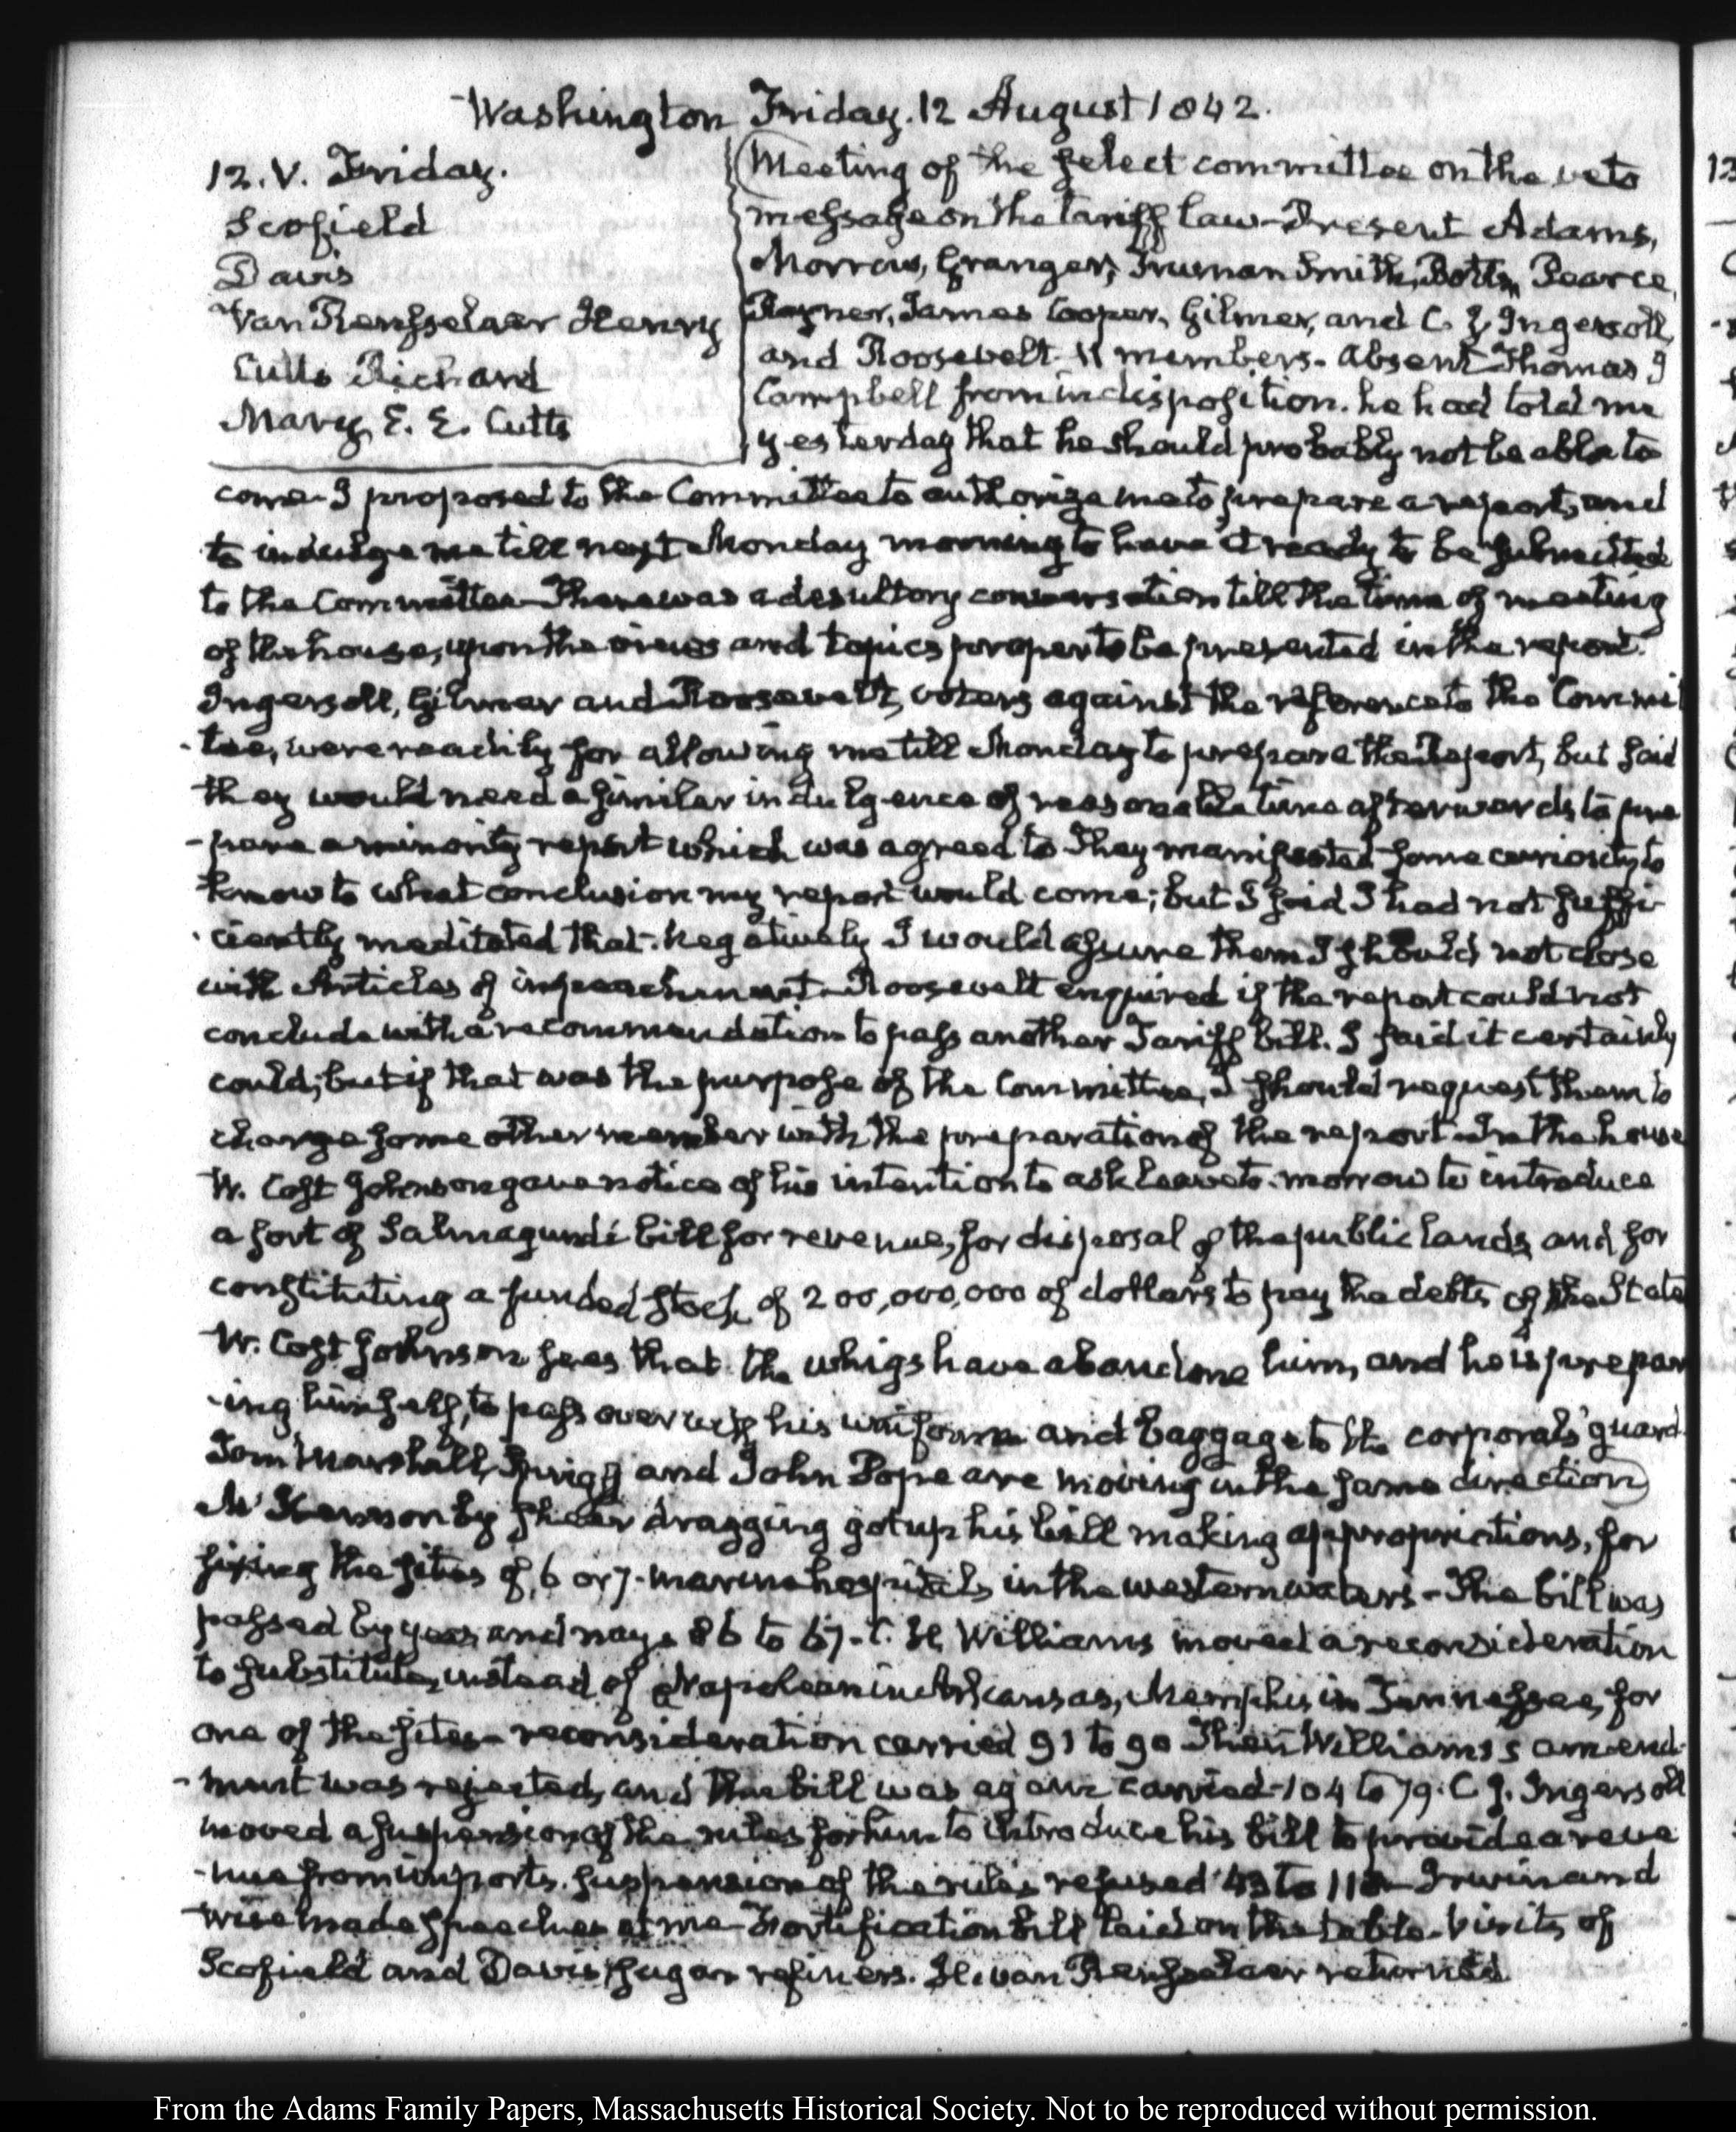 Washington Friday. 12 August 1842.
12. V. Friday.
Scofield
Davis
Van Rensselaer Henry
Cutts Richard
Mary E. E. Cutts
Meeting of the select committee on the veto
message on the tariff law - Present Adams,
Morrow, Granger, Truman Smith, Botts, Pearce,
Rayner, James Cooper, Gilmer, and C. J. Ingersoll,
and Roosevelt. 11 members - absent Thomas J
Campbell from indisposition. he had told me
yesterday that he should probably not be able to
come - I proposed to the Committee to authorize me to prepare a report, and
to indulge me till next Monday morning to have it ready to be submitted
to the Committee - There was a desultory conversation till the time of meeting
of the house, upon the views and topics proper to be presented in the report.
Ingersoll, Gilmer and Roosevelt, voters against the reference to the Commit
-tee, were readily for allowing me till Monday to prepare the Report, but said
they would need a similar indulgence of reasonable time afterwards to pre
-pare a minority report which was agreed to They manifested some curiosity to
know to what conclusion my report would come; but I said I had not suffi-
-ciently meditated that. Negatively I would assure them I should not close
with Articles of impeachment - Roosevelt enquired if the report could not
conclude with a recommendation to pass another Tariff bill. I said it certainly
could; but if that was the purpose of the Committee, I should request them to
charge some other member with the preparation of the report - In the house
W. Cost Johnson gave notice of his intention to ask leave to-morrow to introduce
a sort of Salmagundi bill for revenue, for disposal of the public lands, and for
constituting a funded stock of 200,000,000 of dollars to pay the debts of the State
W. Cost Johnson sees that the whigs have abandone him, and he is prepar
-ing himself, to pass over with his uniform and baggage to the corporal's guard.
Tom Marshall, Sprigg and John Pope are moving in the same direction
by sheer dragging got up his bill making appropriations, for
fixing the sites of, 6 or 7 - marine hospitals in the western waters - The bill was
passed by yeas and nays 86 to 67 - C. H. Williams moved a reconsideration
to substitute, instead of Napoleon in Arkansas, Memphis in Tennessee, for
one of the sites - reconsideration carried 91 to 90 Then Williams's amend-
-ment was rejected, and the bill was again carried - 104 to 79. C J. Ingersoll
moved a suspension of the rules for him to introduce his bill to provide a reve
-nue from imports. suspension of the rules refused - Irwin and
Wise made speeches at me - Fortification bill laid on the table - Visits of
Scofield and Davis, sugar refiners. H. van Rensselaer returned
From the Adams Family Papers, Massachusetts Historical Society. Not to be reproduced without permission.